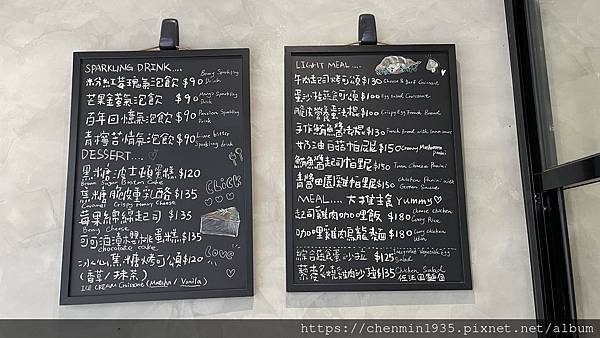 SPARKLING DRINK....
粉紅莓瑰氣泡飲 $90 Berry Sparkling Drink
芒果金蜜氣泡飲 $90 Mango Sparkling Drink
百年回憶氣泡飲 $90 Passion Sparkling Drink
青檸苦情氣泡飲 $90 Lime bitter Sparkling drink
DESSERT....
黑糖波士頓蛋糕 $120
Brown Sugar Boston Cake
焦糖脆皮重乳酪 $135
Caramel Crispy Heavy Cheese
莓果綿綿起司 $135
Berry Cheese
可可泊濃堅桃蛋糕 $135
chocolate cake
冰心焦糖烤可頌 $120
(香草/抹茶)
ICE CREAM Croissane (Matcha/Vanila)
CLICK
Love
LIGHT MEAL....
牛肉起司烤可頌 $130 Cheese & Beef Croissane
蛋沙拉蔬食可頌 $100 Egg Salad Croissane
脆皮營養蛋法棍 $100 Crispy Egg French Bread
手作鮪魚醬法棍 $130 French bread with tuna sauce
奶油白菇帕尼尼 $150 Creamy Mushroom Panini
鮪魚醬起司帕尼 $130 Tuna Cheese Panini
青醬田園雞帕尼 $150 Chicken Panini with Green Sauce
MEAL.... 大推主食 Yummy
起司雞肉咖哩飯 $180 Cheese Chicken Curry Rice
咖哩雞肉烏龍麵 $180 Curry Chicken Udon
綜合蔬食蛋沙拉 $125 Integrated Vegetable Egg Salad
藜麥炙燒雞肉沙拉 $135 Chicken Salad
佐法國麵包
https://chenmin1935.pixnet.net/album